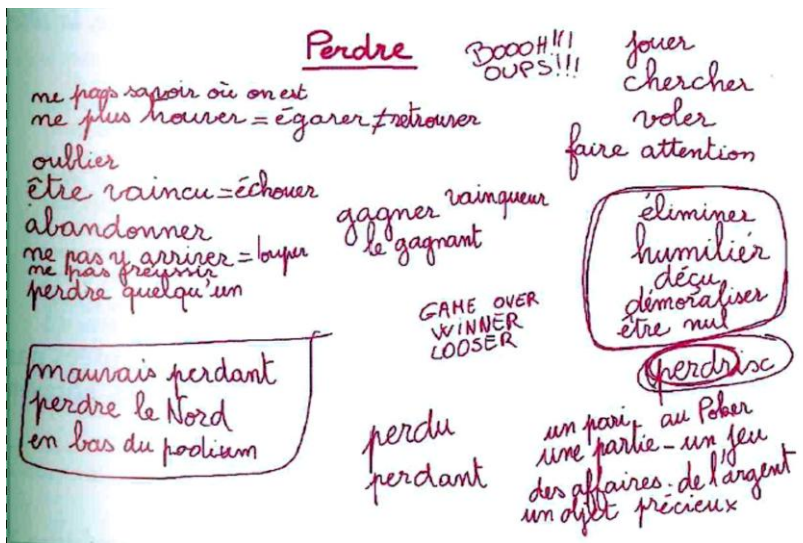 Perdre
BOOOH!!!
OUPS!!!
jouer
chercher
voler
faire attention
ne pas savoir où on est
ne plus trouver = égarer ≠ retrouver
oublier
être vaincu = échouer
abandonner
ne pas y arriver = louper
ne pas réussir
perdre quelqu'un
gagner vainqueur
le gagnant
GAME OVER
WINNER
LOOSER
éliminer
humilier
déçu
démoraliser
être nul
perdrisc
mauvais perdant
perdre le Nord
en bas du podium
perdu
perdant
un pari au Poker
une partie - un jeu
des affaires - de l'argent
un objet précieux